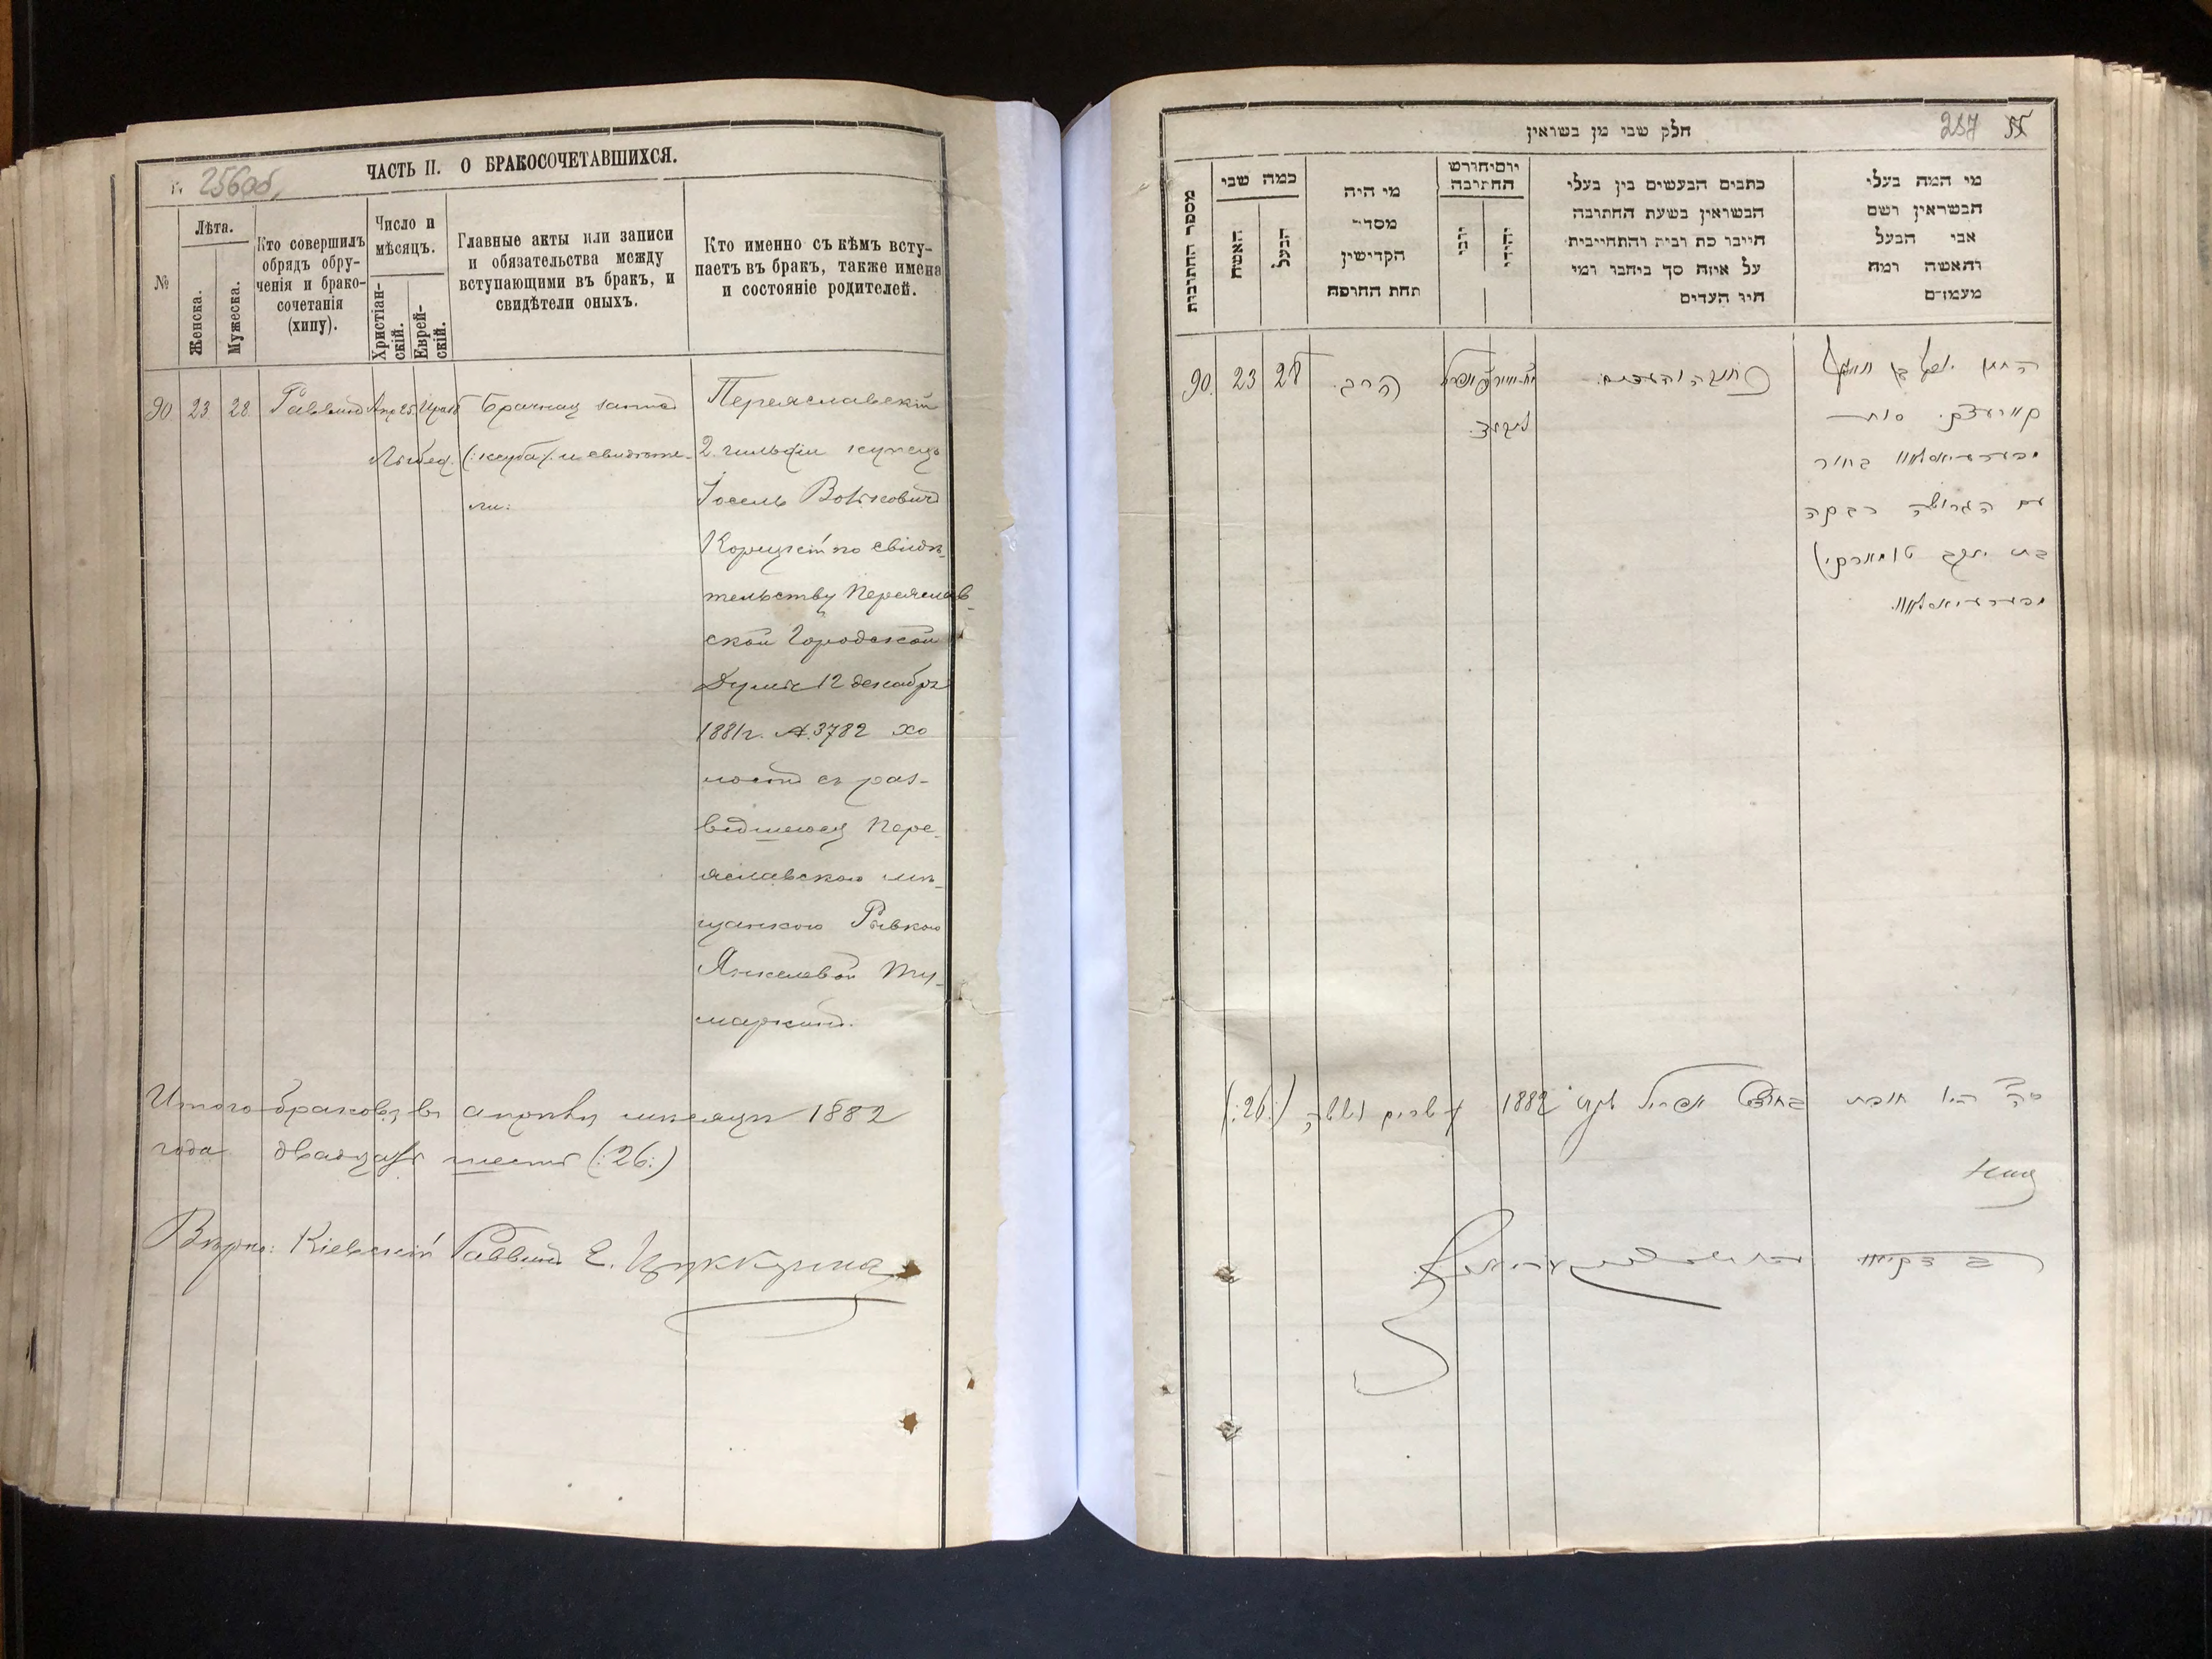 256об.
ЧАСТЬ II. О БРАКОСОЧЕТАВШИХСЯ.
№
Лѣта.
Женска.
Мужеска.
Кто совершилъ
обрядъ обру-
ченія и брако-
сочетанія
(хипу).
Число и
мѣсяцъ.
Христіан-
скій.
Еврей-
скій.
Главные акты или записи
и обязательства между
вступающими въ бракъ, и
свидѣтели оныхъ.
Кто именно съ кѣмъ всту-
паетъ въ бракъ, также имена
и состояніе родителей.
90. 23 28. Раввинъ Апр 25. Брачная запись
(:ксуба:) и свидѣте-
ли:
Переяславскій
2. гильдіи купецъ
Іосель Волковичъ
Корецкій по свидѣ-
тельству Переяслав-
ской Городской
Думы 12 декабря
1881г. №.3782 хо
лостъ съ раз-
ведшеюся Пере-
яславскою мѣ-
щанкою Ривкою
Янкелевой Ту-
маркинъ.
Итого браковъ въ апрѣлѣ мѣсяцѣ 1882
года двадцать шесть (:26:)
Вѣрно: Кіевскій Раввинъ Е. Цуккерманъ
257
חלק שני מן בשואין
מספר החתונות
כמה שני
האשה
הבעל
מי היה
מסדר
הקדישין
תחת החופה
יום וחודש
החתונה
יוני
יהודי
כתבים הנעשים בין בעלי
הנשואין בשעת החתונה
חיובי כת ובית והתחייבות
על איזה סך ביחבו ומי
היו העדים
מי המה בעלי
הנשואין ושם
אבי הבעל
והאשה ומה
מעמדם
90. 23 28 הרב. כתובה והעדים.
החתן יוסף בן וואלף
קארעצקי סוחר
מפערעיאסלאוו בחור
עם הגרושה רבקה
בת יעקב טומארקין
מפערעיאסלאוו.
ס״ה היו חופות בחודש אפריל שנת 1882 עשרים וששה (:26:)